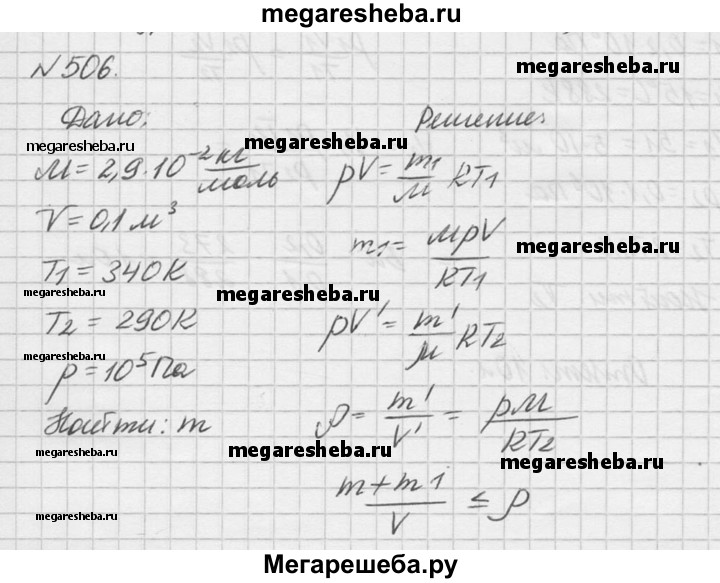 megaresheba.ru
N 506.
megaresheba.ru
Дано: Решение:
megaresheba.ru megaresheba.ru
M = 2,9·10⁻² кг/моль pV = m₁/M RT₁
V = 0,1 м³ m₁ = MpV/RT₁
megaresheba.ru
T₁ = 340К
megaresheba.ru megaresheba.ru
T₂ = 290К pV' = m'/M RT₂
megaresheba.ru
p = 10⁵Па
Найти: m ρ = m'/V' = pM/RT₂
megaresheba.ru megaresheba.ru megaresheba.ru
(m + m1)/V ≤ ρ
megaresheba.ru
Мегарешеба.ру